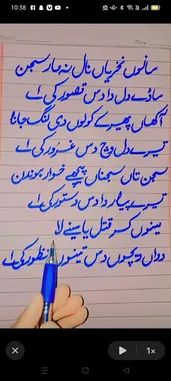 10:58
سانوں نخریاں نال نہ مار سجن
ساڈے دل دا دس قصور کی اے
اکھاں پھیر کے کولوں دی لنگ جانا
تیرے دل وچ دس غرور کی اے
سجن تاں سجناں پیچھے خوار ہوندن
تیرے پیار دا دس دستور کی اے
مینوں کر قتل یا سینے لا
دواں وچوں دس تینوں منظور کی اے
1x